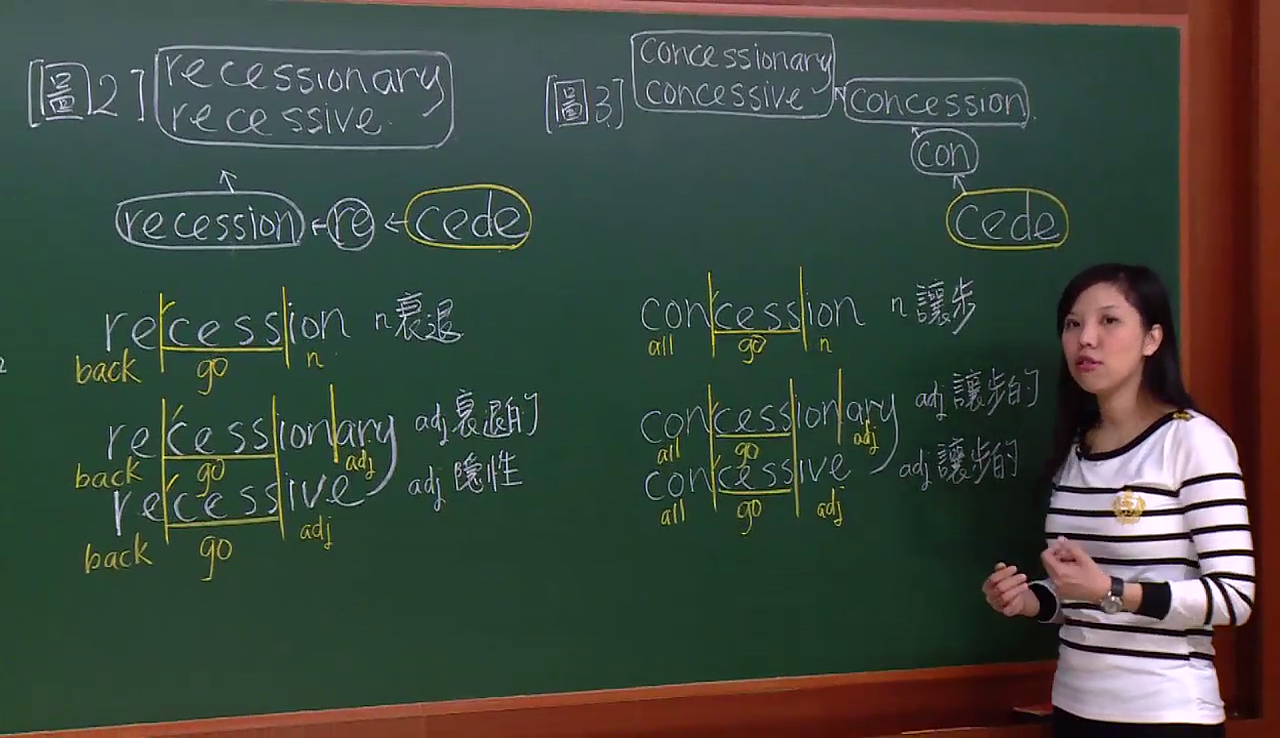 [圖2]
recessionary
recessive
recession ← re ← cede
recession n 衰退
back go n
recessionary adj 衰退的
back go adj
recessive adj 隱性
back go adj
[圖3]
concessionary
concessive
concession
con
cede
concession n 讓步
all go n
concessionary adj 讓步的
all go adj
concessive adj 讓步的
all go adj